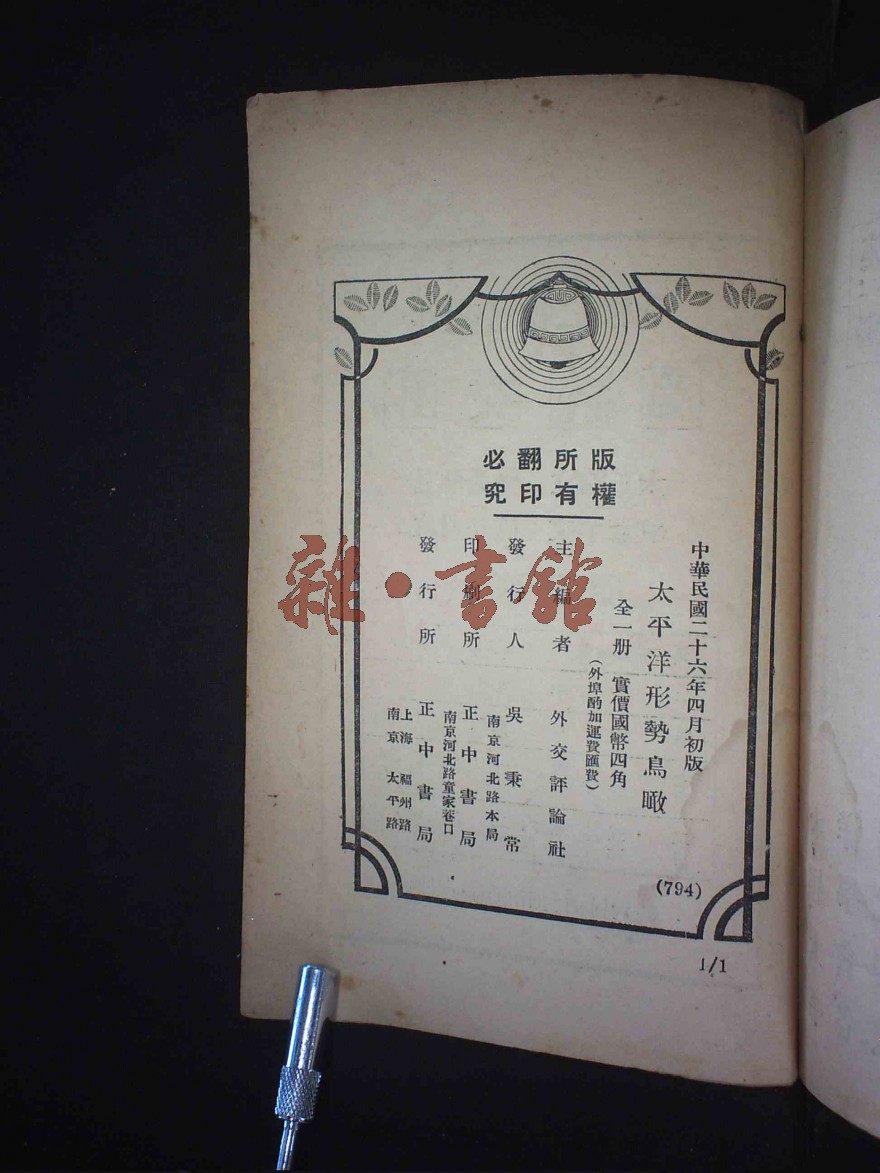 版權
所有
翻印
必究
中華民國二十六年四月初版
太平洋形勢鳥瞰
全一册 實價國幣四角
(外埠酌加運費匯費)
主編者 外交評論社
發行人 吳秉常
南京河北路本局
印刷所 正中書局
南京河北路童家巷口
發行所 正中書局
上海福州路
南京太平路
(794)
1/1
雜·書館